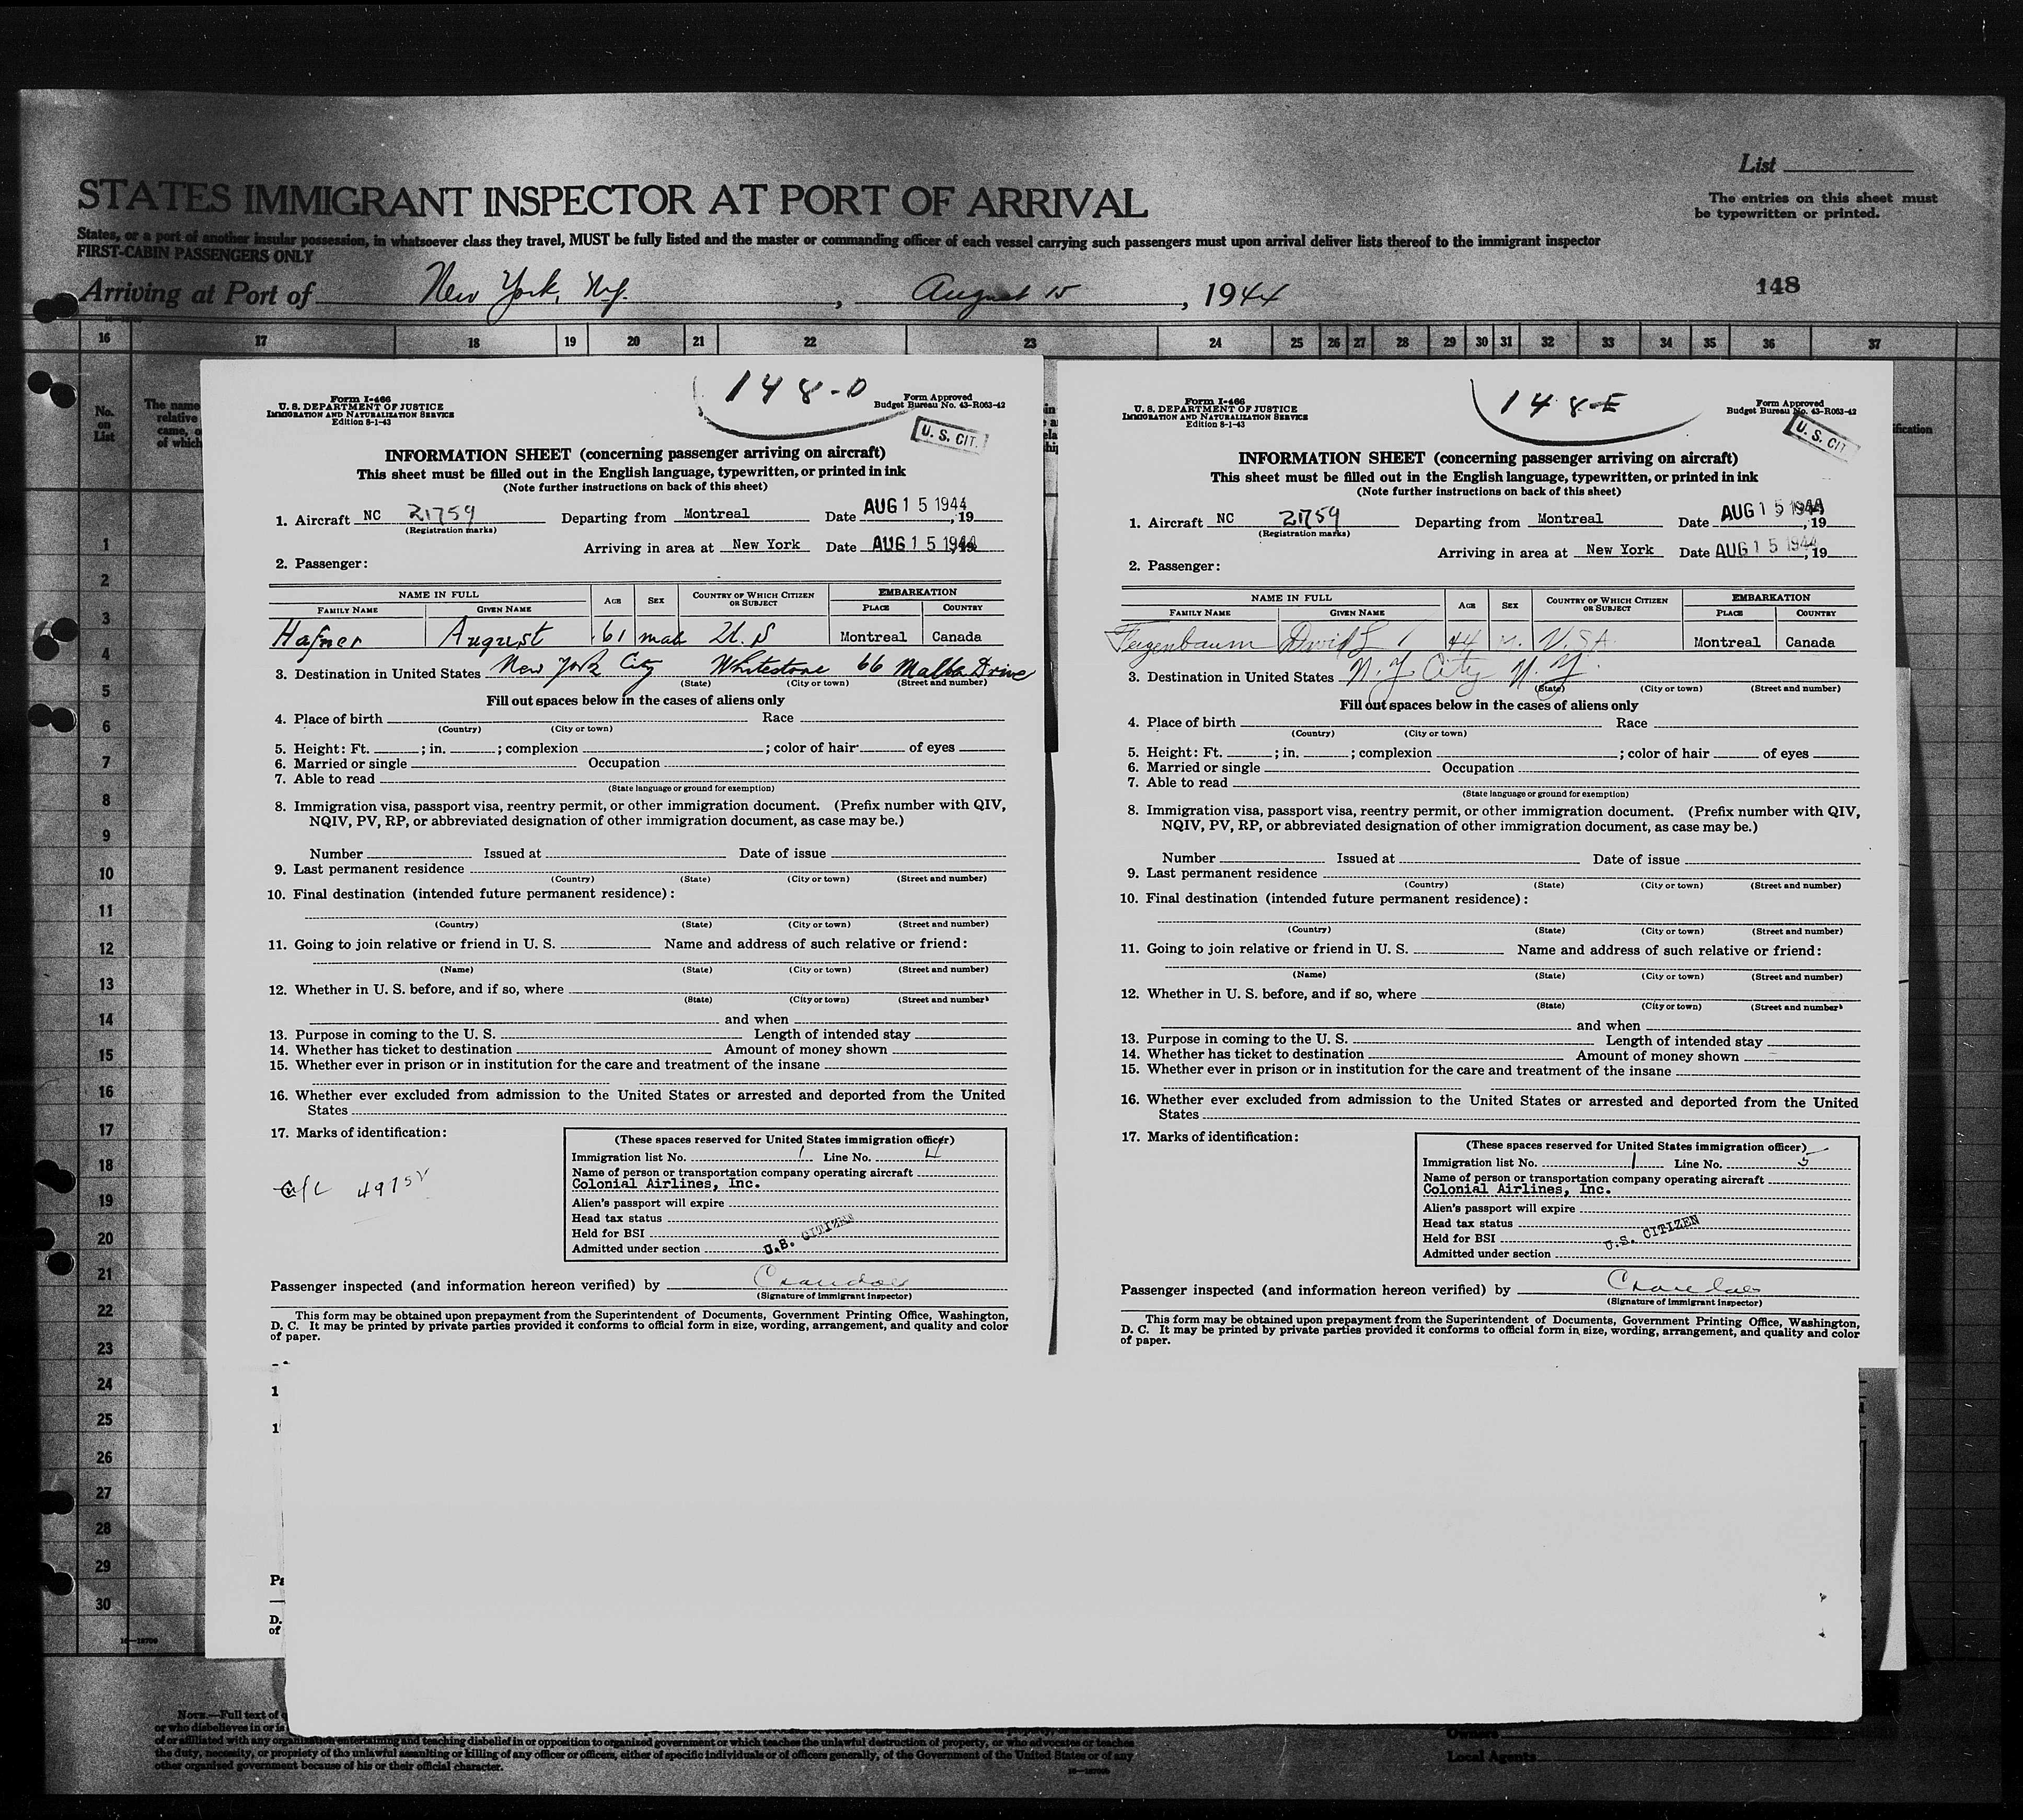 List
STATES IMMIGRANT INSPECTOR AT PORT OF ARRIVAL
The entries on this sheet must
be typewritten or printed.
States, or a port of another insular possession, in whatsoever class they travel, MUST be fully listed and the master or commanding officer of each vessel carrying such passengers must upon arrival deliver lists thereof to the immigrant inspector
FIRST-CABIN PASSENGERS ONLY
Arriving at Port of New York, N.Y., August 15, 1944
148
16 17 18 19 20 21 22 23 24 25 26 27 28 29 30 31 32 33 34 35 36 37
No.
on
List
The name
relative
came, o
of which
1
2
3
4
5
6
7
8
9
10
11
12
13
14
15
16
17
18
19
20
21
22
23
24
25
26
27
28
29
30
148-D
Form I-466
U. S. DEPARTMENT OF JUSTICE
IMMIGRATION AND NATURALIZATION SERVICE
Edition 8-1-43
Form Approved
Budget Bureau No. 43-R063-42
U. S. CIT.
INFORMATION SHEET (concerning passenger arriving on aircraft)
This sheet must be filled out in the English language, typewritten, or printed in ink
(Note further instructions on back of this sheet)
1. Aircraft NC 21759 Departing from Montreal Date AUG 15 1944, 19
(Registration marks)
Arriving in area at New York Date AUG 15 1944, 19
2. Passenger:
NAME IN FULL AGE SEX COUNTRY OF WHICH CITIZEN OR SUBJECT EMBARKATION
FAMILY NAME GIVEN NAME PLACE COUNTRY
Hafner August 61 male U. S Montreal Canada
3. Destination in United States New York City Whitestone 66 Malba Drive
(State) (City or town) (Street and number)
Fill out spaces below in the cases of aliens only
4. Place of birth Race
(Country) (City or town)
5. Height: Ft. ; in. ; complexion ; color of hair of eyes
6. Married or single Occupation
7. Able to read
(State language or ground for exemption)
8. Immigration visa, passport visa, reentry permit, or other immigration document. (Prefix number with QIV,
NQIV, PV, RP, or abbreviated designation of other immigration document, as case may be.)
Number Issued at Date of issue
9. Last permanent residence
(Country) (State) (City or town) (Street and number)
10. Final destination (intended future permanent residence):
(Country) (State) (City or town) (Street and number)
11. Going to join relative or friend in U. S. Name and address of such relative or friend:
(Name) (State) (City or town) (Street and number)
12. Whether in U. S. before, and if so, where
(State) (City or town) (Street and number)
and when
13. Purpose in coming to the U. S. Length of intended stay
14. Whether has ticket to destination Amount of money shown
15. Whether ever in prison or in institution for the care and treatment of the insane
16. Whether ever excluded from admission to the United States or arrested and deported from the United
States
17. Marks of identification:
(These spaces reserved for United States immigration officer)
Immigration list No. 1 Line No. 4
Name of person or transportation company operating aircraft
Colonial Airlines, Inc.
Alien's passport will expire
Head tax status
Held for BSI
Admitted under section
U.S. CITIZEN
Passenger inspected (and information hereon verified) by
(Signature of immigrant inspector)
This form may be obtained upon prepayment from the Superintendent of Documents, Government Printing Office, Washington,
D. C. It may be printed by private parties provided it conforms to official form in size, wording, arrangement, and quality and color
of paper.
148-E
Form I-466
U. S. DEPARTMENT OF JUSTICE
IMMIGRATION AND NATURALIZATION SERVICE
Edition 8-1-43
Form Approved
Budget Bureau No. 43-R063-42
U. S. CIT
INFORMATION SHEET (concerning passenger arriving on aircraft)
This sheet must be filled out in the English language, typewritten, or printed in ink
(Note further instructions on back of this sheet)
1. Aircraft NC 21759 Departing from Montreal Date AUG 15 1944, 19
(Registration marks)
Arriving in area at New York Date AUG 15 1944, 19
2. Passenger:
NAME IN FULL AGE SEX COUNTRY OF WHICH CITIZEN OR SUBJECT EMBARKATION
FAMILY NAME GIVEN NAME PLACE COUNTRY
Feigenbaum David L 44 M. U.S.A. Montreal Canada
3. Destination in United States N.Y. City N.Y.
(State) (City or town) (Street and number)
Fill out spaces below in the cases of aliens only
4. Place of birth Race
(Country) (City or town)
5. Height: Ft. ; in. ; complexion ; color of hair of eyes
6. Married or single Occupation
7. Able to read
(State language or ground for exemption)
8. Immigration visa, passport visa, reentry permit, or other immigration document. (Prefix number with QIV,
NQIV, PV, RP, or abbreviated designation of other immigration document, as case may be.)
Number Issued at Date of issue
9. Last permanent residence
(Country) (State) (City or town) (Street and number)
10. Final destination (intended future permanent residence):
(Country) (State) (City or town) (Street and number)
11. Going to join relative or friend in U. S. Name and address of such relative or friend:
(Name) (State) (City or town) (Street and number)
12. Whether in U. S. before, and if so, where
(State) (City or town) (Street and number)
and when
13. Purpose in coming to the U. S. Length of intended stay
14. Whether has ticket to destination Amount of money shown
15. Whether ever in prison or in institution for the care and treatment of the insane
16. Whether ever excluded from admission to the United States or arrested and deported from the United
States
17. Marks of identification:
(These spaces reserved for United States immigration officer)
Immigration list No. 1 Line No. 5
Name of person or transportation company operating aircraft
Colonial Airlines, Inc.
Alien's passport will expire
Head tax status
Held for BSI
Admitted under section
U.S. CITIZEN
Passenger inspected (and information hereon verified) by
(Signature of immigrant inspector)
This form may be obtained upon prepayment from the Superintendent of Documents, Government Printing Office, Washington,
D. C. It may be printed by private parties provided it conforms to official form in size, wording, arrangement, and quality and color
of paper.
NOTE.—Full text of
or who disbelieves in or is
of or affiliated with any organization entertaining and teaching disbelief in or opposition to organized government or which teaches the unlawful destruction of property, or who advocates or teaches
the duty, necessity, or propriety of the unlawful assaulting or killing of any officer or officers, either of specific individuals or of officers generally, of the Government of the United States or of any
other organized government because of his or their official character.
Owners
Local Agents